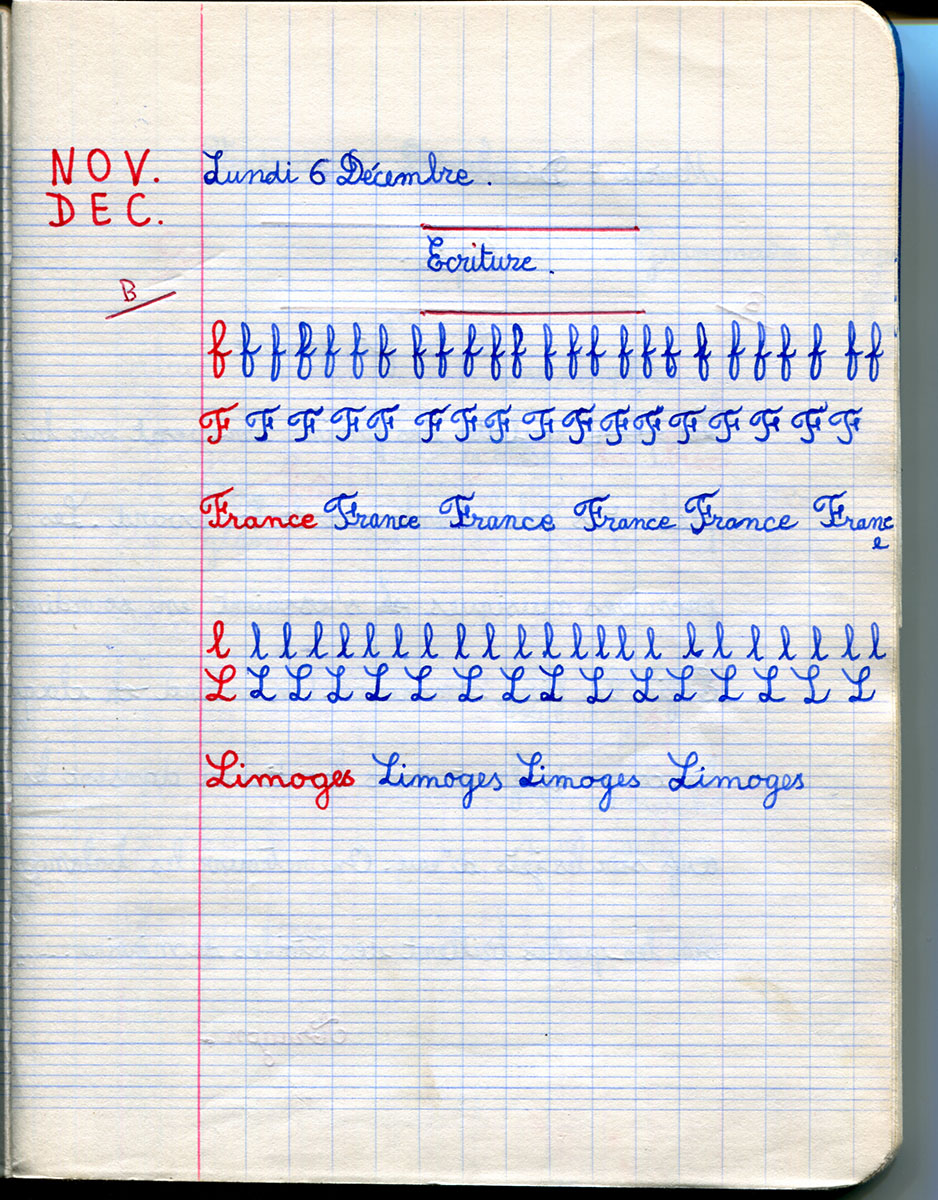 NOV. Lundi 6 Décembre.
DEC.
Ecriture.
B
f f f f f f f f f f f f f f f f f f f f f f f f f
F F F F F F F F F F F F F F F F F
France France France France France Franc
e
l l l l l l l l l l l l l l l l l l l l l l l
L L L L L L L L L L L L L L L L
Limoges Limoges Limoges Limoges